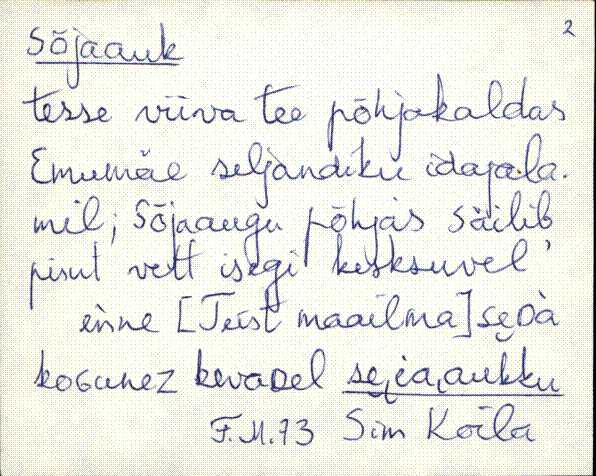 2
Sõjaauk
tesse viiva tee põhjakaldas
Emumäe seljandiku idajala-
mil; Sõjaaugu põhjas säilib
pisut vett isegi kesksuvel'
enne [Teist maailma] sẹDà
koGunez kevaDel sẹia,aukku
F.M.73 Sim Koila